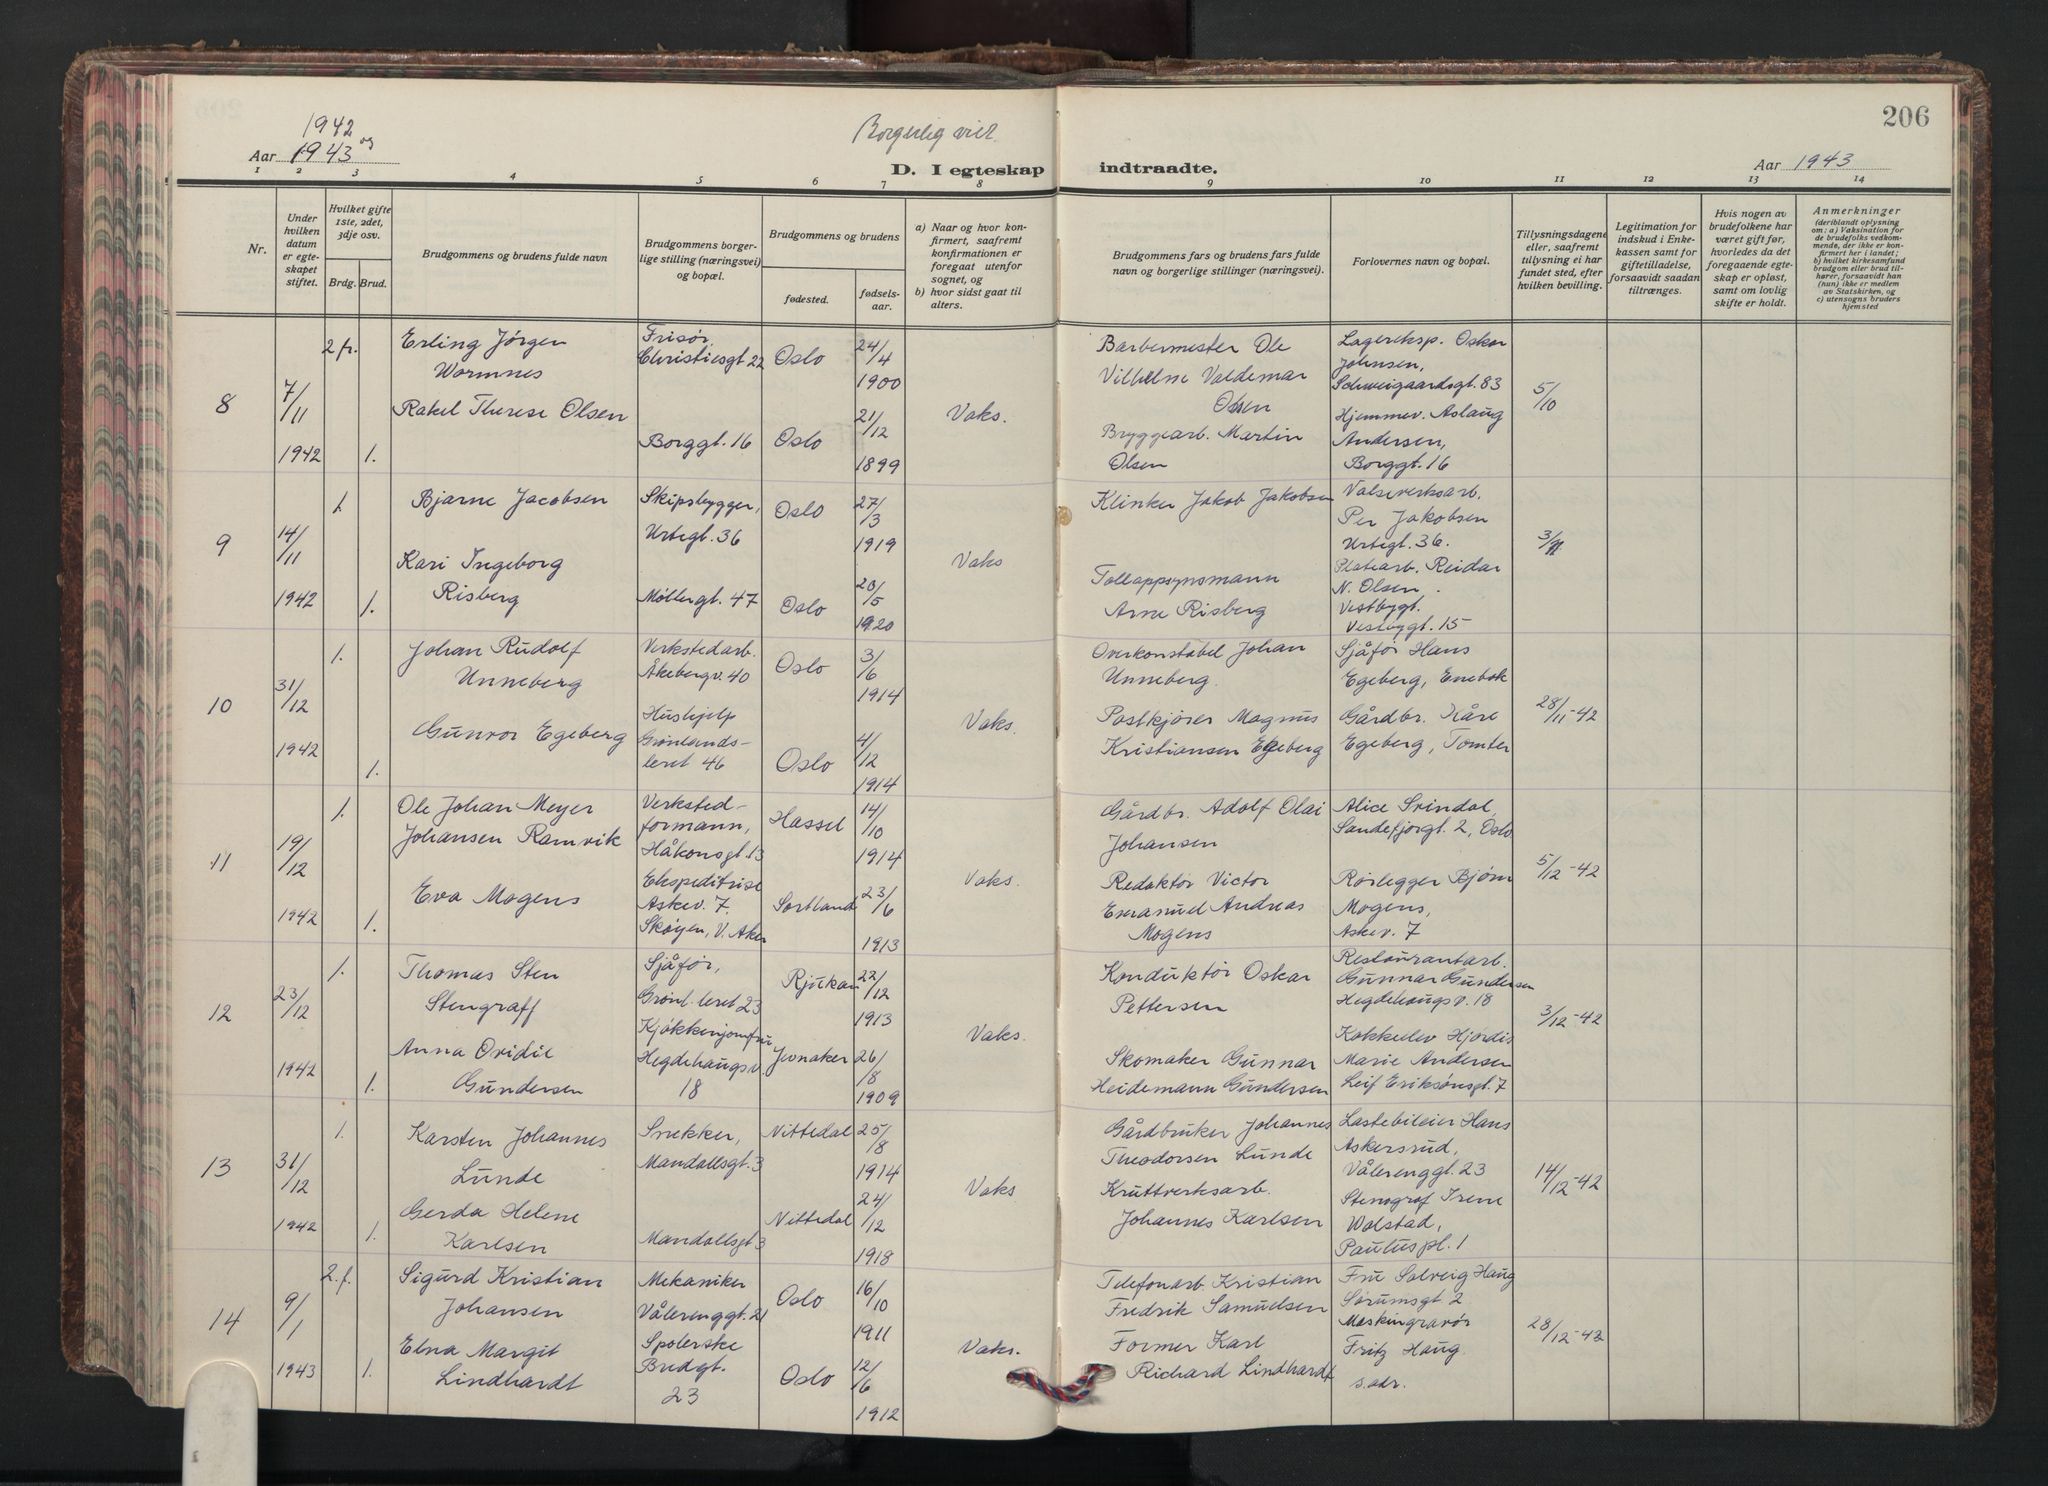 206
1942
og
Aar 1943
Borgerlig viet.
D. I egteskap
indtraadte.
Aar 1943
1 2 3 4 5 6 7 8 9 10 11 12 13 14
Nr.
Under
hvilken
datum
er egte-
skapet
stiftet.
Hvilket gifte
1ste, 2det,
3dje osv.
Brdg. Brud.
Brudgommens og brudens fulde navn
Brudgommens borger-
lige stilling (næringsvei)
og bopæl.
Brudgommens og brudens
fødested.
fødsels-
aar.
a) Naar og hvor kon-
firmert, saafremt
konfirmationen er
foregaat utenfor
sognet, og
b) hvor sidst gaat til
alters.
Brudgommens fars og brudens fars fulde
navn og borgerlige stillinger (næringsvei).
Forlovernes navn og bopæl.
Tillysningsdagene
eller, saafremt
tillysning ei har
fundet sted, efter
hvilken bevilling.
Legitimation for
indskud i Enke-
kassen samt for
giftetilladelse,
forsaavidt saadan
tiltrænges.
Hvis nogen av
brudefolkene har
været gift før,
hvorledes da det
foregaaende egte-
skap er opløst,
samt om lovlig
skifte er holdt.
Anmerkninger
(deriblandt oplysning
om: a) Vaksination for
de brudefolks vedkom-
mende, der ikke er kon-
firmert her i landet;
b) hvilket kirkesamfund
brudgom eller brud til-
hører, forsaavidt han
(hun) ikke er medlem
av Statskirken, og
c) utensogns bruders
hjemsted
8
7/11
1942
2 fr.
1.
Erling Jörgen
Wormnes
Rakel Therese Olsen
Frisør,
Christiesgt 22
Borggt. 16
Oslo
Oslo
24/4
1900
21/12
1899
Vaks.
Barbermester Ole
Vilhelm Valdemar
Olsen
Bryggearb. Martin
Olsen
Lagereksp. Oskar
Johnsen,
Schweigaardsgt. 83
Hjemmev. Aslaug
Andersen,
Borggt. 16
5/10
9
14/11
1942
1.
1.
Bjarne Jacobsen
Kari Ingeborg
Risberg
Skipsbygger,
Urtegt. 36
Møllergt. 47
Oslo
Oslo
27/3
1919
20/5
1920
Vaks
Klinker Jakob Jakobsen
Tollappsynsmann
Arne Risberg
Valseverksarb.
Per Jakobsen
Urtegt. 36.
Platearb. Reidar
N. Olsen
Vestbygt.
Vestbygt. 15
3/11
10
31/12
1942
1.
1.
Johan Rudolf
Unneberg
Gunvor Egeberg
Verkstedarb.
Åkebergv. 40
Hushjelp
Grønlands-
leret 46
Oslo
Oslo
3/6
1914
4/12
1914
Vaks.
Overkonstabel Johan
Unneberg.
Postkjører Magnus
Kristiansen Egeberg
Sjåfør Hans
Egeberg, Enebak
Gårdbr. Kåre
Egeberg, Tomter
28/11-42
11
19/12
1942
1.
1.
Ole Johan Meyer
Johansen Ramvik
Eva Mogens
Verksted-
formann,
Håkonsgt. 13
Ekspeditrise
Askev. 7.
Skøyen, V. Aker
Hassel
Sortland
14/10
1914
23/6
1913
Vaks.
Gårdbr. Adolf Olai
Johansen
Redaktør Victor
Emanuel Andreas
Mogens
Alice Svindal,
Sandefjorgt. 2, Oslo
Rørlegger Bjørn
Mogens,
Askev. 7
5/12-42
12
23/12
1942
1.
1.
Thomas Sten
Stengraff
Anna Ovidie
Gundersen
Sjåfør,
Grønl. leret 23
Kjøkkenjomfru
Hegdehaugsv.
18
Rjukan
Jevnaker
22/12
1913
26/8
1909
Vaks.
Konduktør Oskar
Pettersen
Skomaker Gunnar
Heidemann Gundersen
Restaurantarb.
Gunnar Gundersen
Hegdehaugsv. 18
Kokkelev Hjördis
Marie Andersen
Leif Eriksønsgt. 7
3/12-42
13
31/12
1942
1.
1.
Karsten Johannes
Lunde
Gerda Helene
Karlsen
Snekker,
Mandallsgt. 3
Mandallsgt 3
Nittedal
Nittedal
25/8
1914
24/12
1918
Vaks
Gårdbruker Johannes
Theodorsen Lunde
Kruttverksarb.
Johannes Karlsen
Lastebileier Hans
Askersrud,
Vålerenggt. 23
Stenograf Irene
Wolstad,
Pauluspl. 1
14/12-42
14
9/1
1943
2. f.
1.
Sigurd Kristian
Johansen
Elna Margit
Lindhardt
Mekaniker
Vålerenggt. 21
Spolerske
Bredgt.
23
Oslo
Oslo
16/10
1911
12/6
1912
Vaks.
Telefonarb. Kristian
Fredrik Samuelsen
Former Karl
Richard Lindhardt
Fru Solveig Haug
Sørumsgt 2
Maskingravør
Fritz Haug.
s. adr.
28/12-42